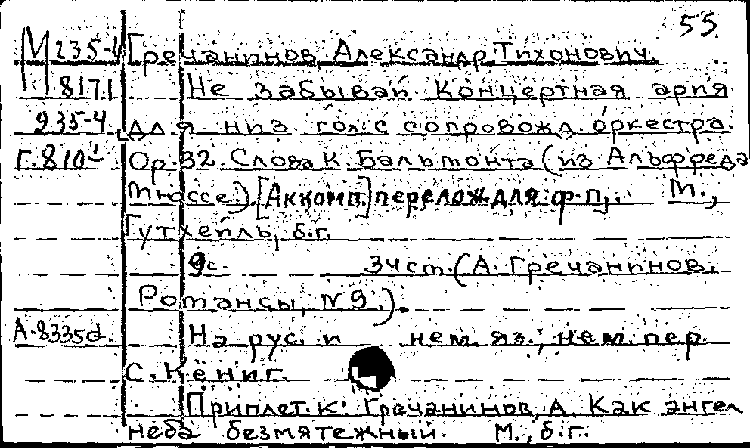 55
М 235-4 Гречанинов, Александр Тихонович.
8171 Не забывай. Концертная ария
235-4 для низ. гол. с сопровожд. оркестра.
Г.810 Op. 32. Слова К. Бальмонта (из Альфреда
Мюссе). [Аккомп.] перелож. для ф-п. М.,
Гутхейль, б.г.
9с. 34 ст. (А. Гречанинов.
Романсы, №9.).
А-8335d. На рус. и нем. яз.; нем. пер.
С. Кёниг.
Приплет. к: Гречанинов, А. Как ангел
неба безмятежный. М., б.г.